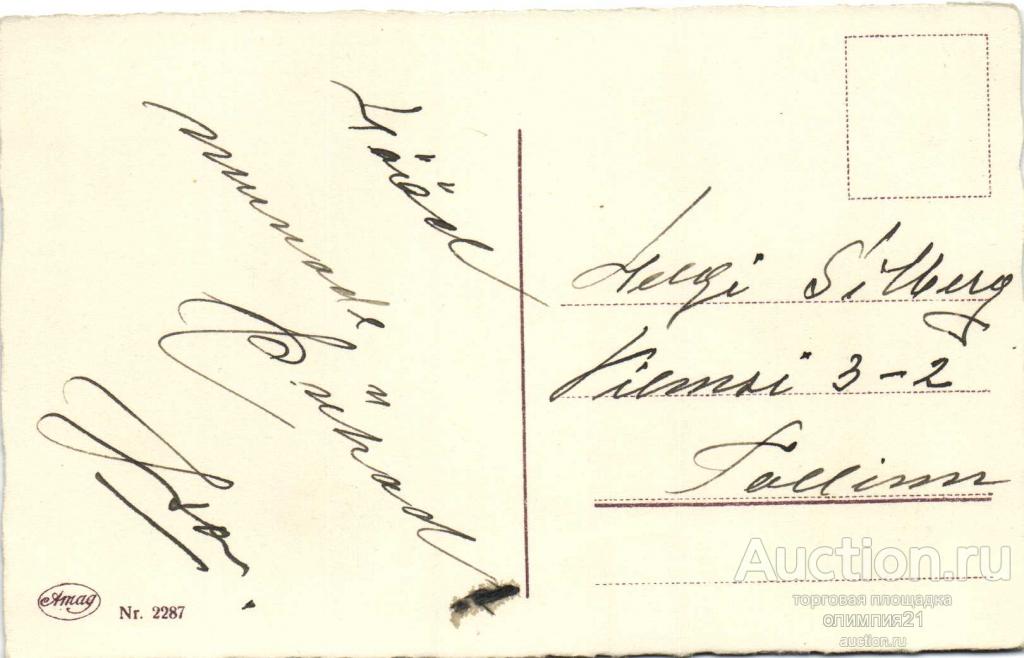 Häid
munade
Pühad
Helgi Silberg
Vilmsi 3-2
Tallinn
Amag
Nr. 2287
Auction.ru
торговая площадка
олимпия21
auction.ru